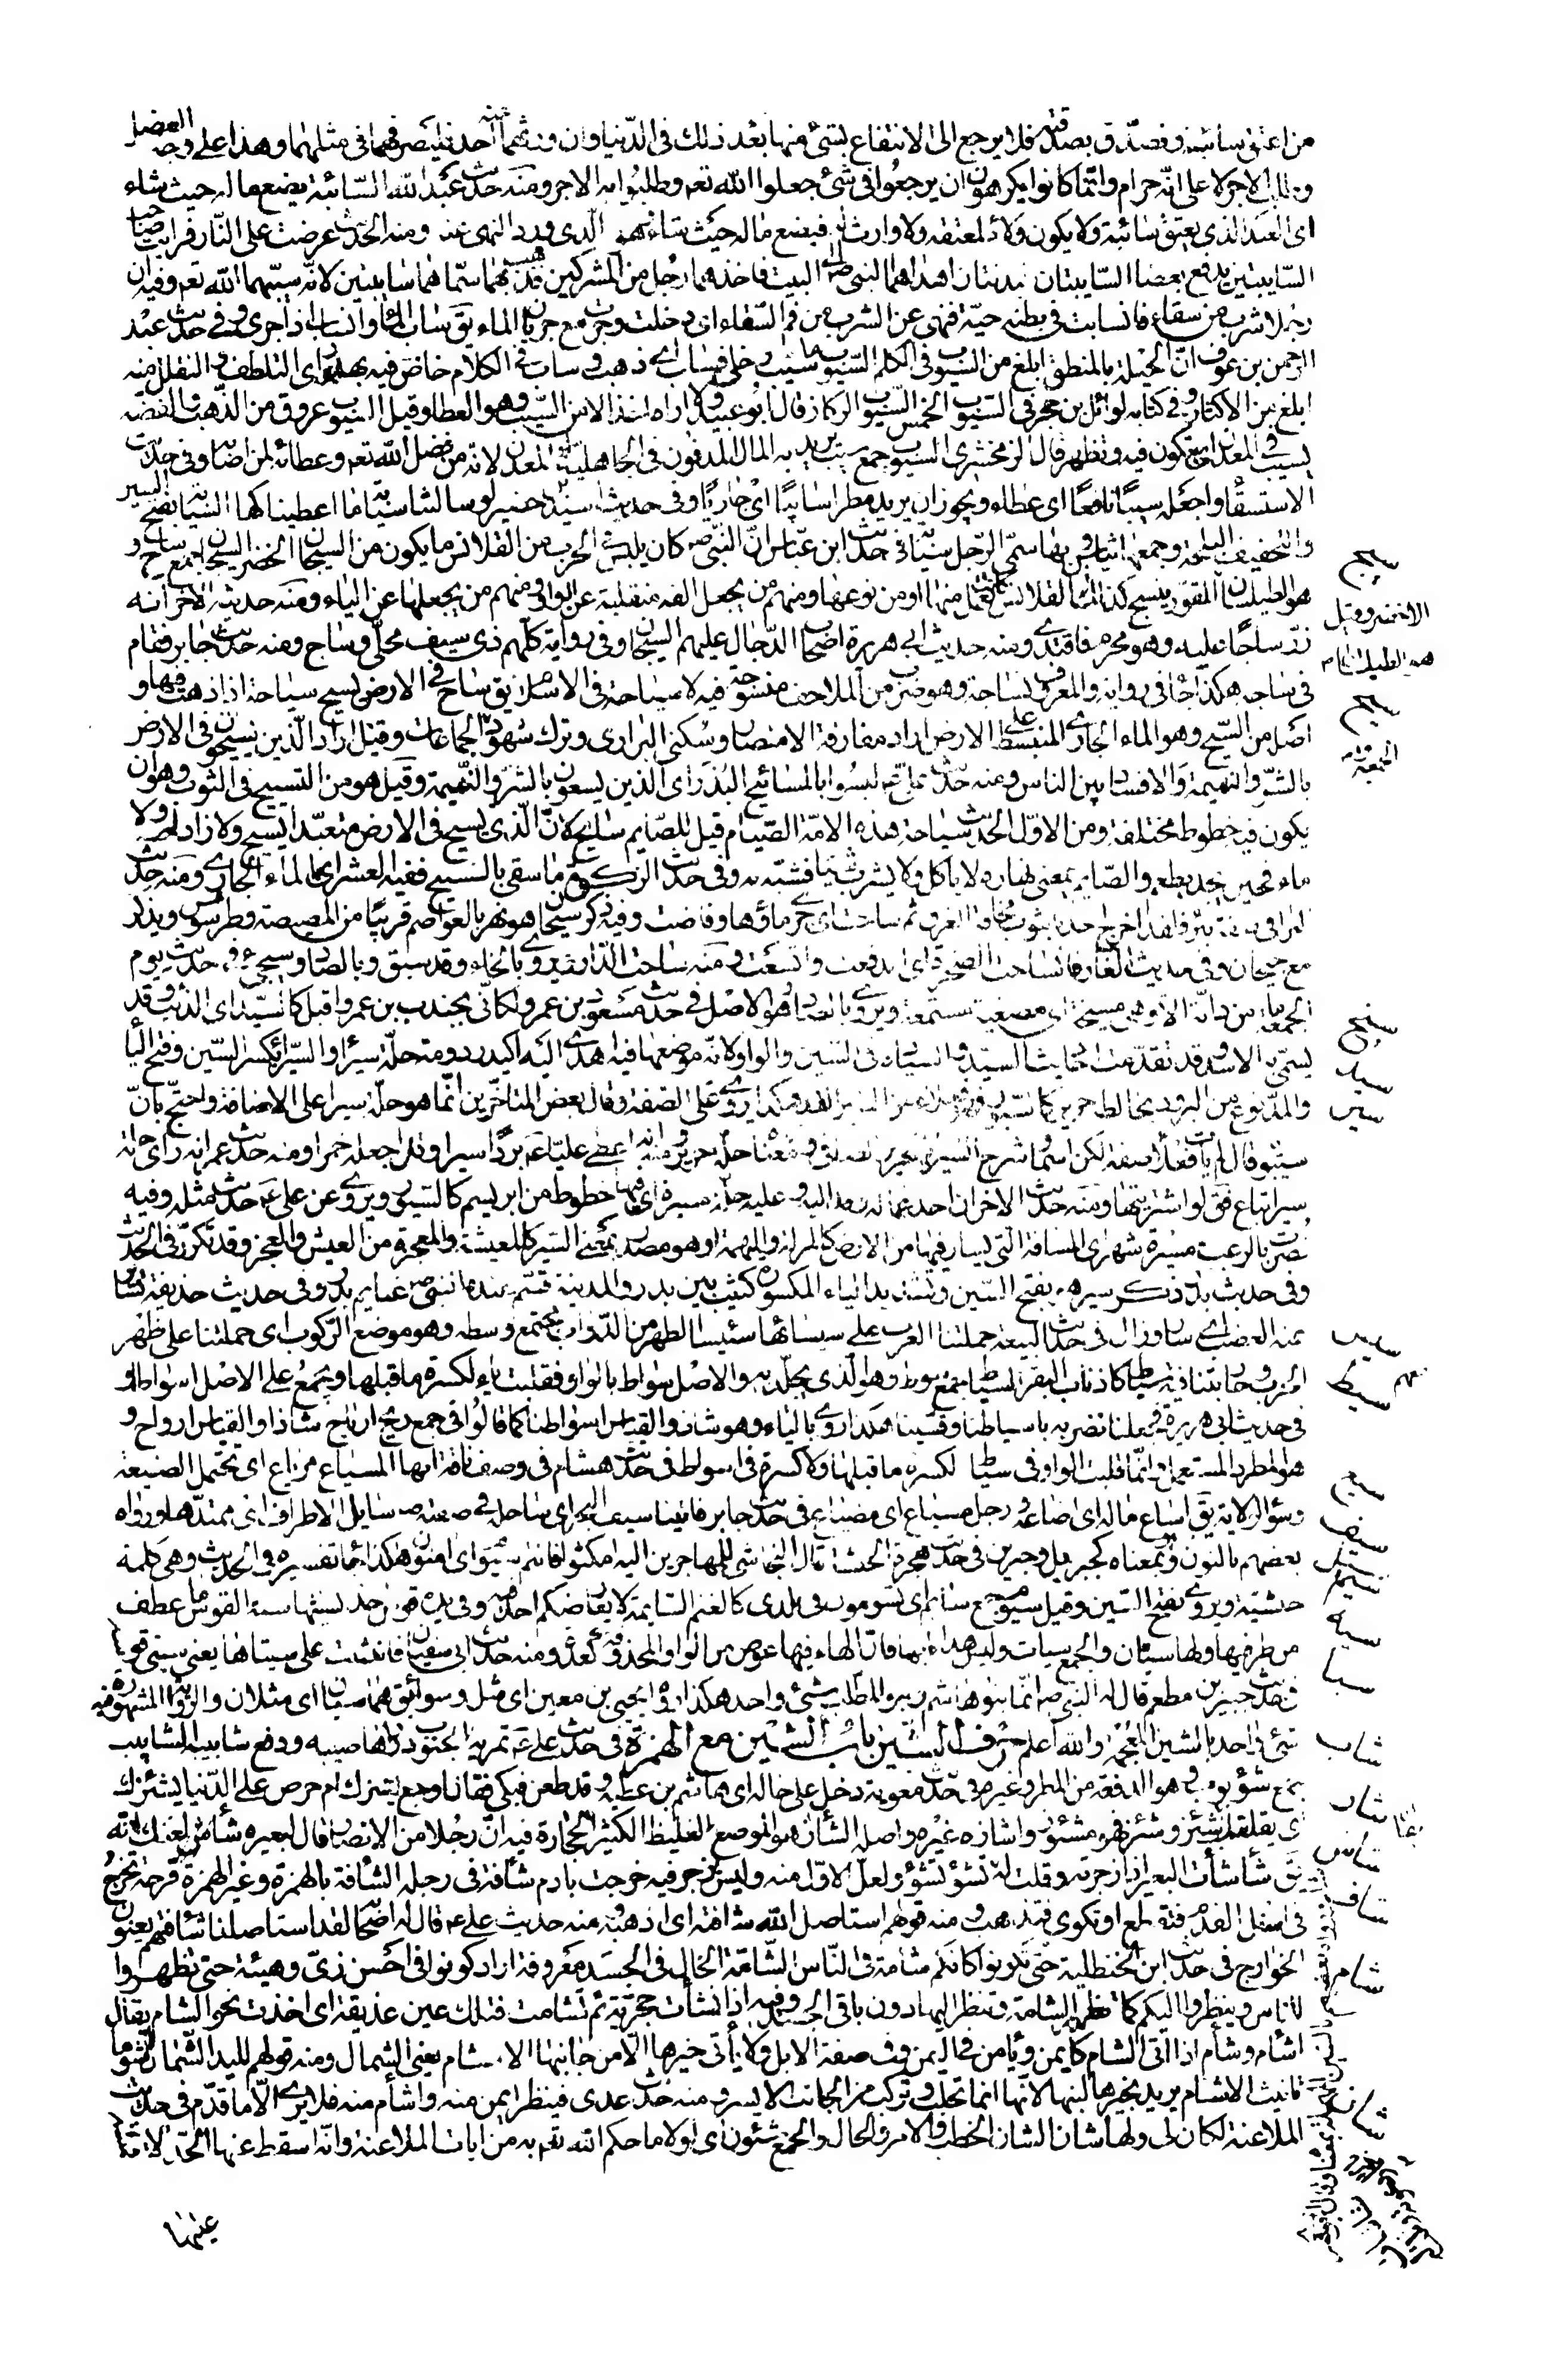 من اعتق سائبة وتصدق بصدقته فلا يرجع الى الانتفاع بشئ منها بعد ذلك فى الدنيا وان ورثهما احد فليصرفهما فى مثلهما وهذا على وجه الفضل
وطلب الاجر لا على انه حرام وانما كانوا يكرهون ان يرجعوا فى شئ جعلوا الله تعم وطلبوا به الاجر ومنه حديث عبد الله السائبة يضع ماله حيث شاء
اى العبد الذى يعتق سائبة ولا يكون ولاؤه لمعتقه ولا وارث له فيضع ماله حيث شاء وهو الذى ورد النهى عنه ومنه الحديث عرضت على النار فرايت صاحب
السايبتين يدفع بعصا السايبتان بدنتان اهداهما النبى ص الى البيت فاخذهما رجل من المشركين فذهب بهما سماهما سايبتين لانه سيبهما الله تعم وفيه ان
رجلا شرب من سقاء فانسابت فى بطنه حية فنهى عن الشرب من فم السقاء اى دخلت وجرت مع جريان الماء يق ساب الماء وانساب اذا جرى وفى حديث عبد
الرحمن بن عوف ان الحيلة بالمنطق ابلغ من السيوب فى الكلم السيوب ما سيب وخلى فساب اى ذهب وساب فى الكلام خاض فيه بهذر اى التلطف والتقلل منه
ابلغ من الاكثار وفى كتابه لوائل بن حجر وفى السيوب الخمس السيوب الركاز قال ابو عبيد ولا اراه اخذ الا من السيب وهو العطاء وقيل السيوب عروق من الذهب والفضة
تسيب فى المعدن اى تتكون فيه وتظهر قال الزمخشرى السيوب جمع سيب يريد به المال المدفون فى الجاهلية او المعدن لانه من فضل الله تعم وعطائه لمن اصابه وفى حديث
الاستسقاء واجعله سيبا نافعا اى عطاء ويجوز ان يريد مطرا سايبا اى جاريا وفى حديث اسيد بن حضير لو سالتنا سيابة ما اعطيناكها السيابة بفتح السين
والتخفيف البلحة وجمعها سياب وبها سمى الرجل سيابة فى حديث ابن عباس ان النبى ص كان يلبس فى الحرب من القلانس ما يكون من السيجان الخضر السيجان جمع ساج و
هو الطيلسان المقور ينسج كذلك كان القلانس كانت تعمل منها او من نوعها ومنهم من يجعل الفه منقلبة عن الواو ومنهم من يجعلها عن الياء ومنه حديثه الاخر انه
زر ساجا عليه وهو محرم فافتدى ومنه حديث ابى هريرة اصحاب الدجال عليهم السيجان وفى رواية كلهم ذى سيف محلى وساج ومنه حديث جابر فقام
فى ساجه هكذا جاء فى رواية والمعروف نساجة وهو ضرب من الملاحف منسوجة فيه لا سياحة فى الاسلام يق ساح فى الارض يسيح سياحة اذا ذهب فيها و
اصله من السيح وهو الماء الجارى المنبسط على الارض اراد مفارقة الامصار وسكنى البرارى وترك شهود الجماعات وقيل اراد الذين يسيحون فى الارض
بالشر والنميمة والافساد بين الناس ومنه حديث على ع ليسوا بالمسائيح البذر اى الذين يسعون بالشر والنميمة وقيل هو من التسييح فى الثوب وهو ان
يكون فيه خطوط مختلفة ومن الاول الحديث سياحة هذه الامة الصيام قيل للصايم سايح لان الذى يسيح فى الارض متعبدا يسيح ولا زاد له ولا
ماء فحين يجد يطعم والصايم يمضى نهاره لا ياكل ولا يشرب شيئا فشبه به وفى حديث الزكوة ما سقى بالسيح ففيه العشر اى الماء الجارى ومنه حديث
البراء فى صفة بئر فلقد اخرج احدنا بثوب مخافة الغرق ثم ساحت اى جرى ماؤها وفاضت وفيه ذكر سيحان هو نهر بالعواصم قريبا من المصيصة وطرسوس ويذكر
مع جيحان وفى حديث الغار فانساحت الصخرة اى اندفعت واتسعت ومنه ساحة الدار ويروى بالخاء وقد سبق وبالصاد وسيجئ فى حديث يوم
الجمعة ما من دابة الا وهى مسيخة اى مصغية مستمعة ويروى بالصاد وهو الاصل فى حديث مسعود بن عمرو لكانى بجندب بن عمرو اقبل كالسيد اى الذئب وقد
يسمى به الاسد وقد تقدمت احاديث السيد والسيادة فى السين والواو لانه موضعها فيه اهدى اليه اكيدر دومة حلة سيراء السيراء بكسر السين وفتح الياء
والمد نوع من البرود يخالطه حرير كالسيور فهو فعلاء من السير القد هكذا يروى على الصفة وقال بعض المتاخرين انما هو حلة سيراء على الاضافة واحتج بان
سيبويه قال لم يات فعلاء صفة لكن اسما وشرح السيراء بالحرير الصافى ومعناه حلة حرير ومنه انه اعطى عليا ع بردا سيراء وقال اجعله خمرا ومنه حديث عمر انه راى حلة
سيراء تباع فق لو اشتريتها ومنه حديثه الاخر ان احد عماله وفد اليه وعليه حلة مسيرة اى فيها خطوط من ابريسم كالسيور ويروى عن على ع حديث مثله وفيه
نصرت بالرعب مسيرة شهر اى المسافة التى يسار فيها من الارض كالمنزلة والمتهمة او هو مصدر بمعنى السير كالمعيشة والمعجزة من العيش والعجز وقد تكرر فى الحديث
وفى حديث بدر ذكر سير هو بفتح السين وتشديد الياء المكسورة كثيب بين بدر والمدينة قسم عنده النبى ص غنايم بدر وفى حديث حذيفة تساير
عنه الغضب اى سار وزال فى حديث البيعة حملتنا العرب على سيسائها سيساء الظهر من الدواب مجتمع وسطه وهو موضع الركوب اى حملتنا على ظهر
الحرب وحاربتنا فيه سياط كاذناب البقر السياط جمع سوط وهو الذى يجلد به والاصل سواط بالواو فقلبت ياء لكسرة ما قبلها ويجمع على الاصل اسواطا و
فى حديث ابى هريرة فجعلنا نضربه باسياطنا وقسينا هكذا روى بالياء وهو شاذ والقياس اسواطنا كما قالوا فى جمع ريح ارياح شاذا والقياس ارواح و
هو المطرد المستعمل وانما قلبت الواو فى سياط لكسرة ما قبلها ولا كسرة فى اسواط فى حديث هشام فى وصف ناقة انها لمسياع مرياع اى تحتمل الضيعة
وسوء الولاية يق اساع ماله اى اضاعه ورجل مسياع اى مضياع فى حديث جابر فاتينا سيف البحر اى ساحله فى صفته ص سايل الاطراف اى ممتدها ورواه
بعضهم بالنون وهو بمعناه كجبريل وجبرين فى حديث هجرة الحبشة قال النجاشى للمهاجرين اليه امكثوا فانتم سيوم اى امنون هكذا جاء تفسيره فى الحديث وهى كلمة
حبشية ويروى بفتح السين وقيل سيوم جمع سائم اى تسومون فى بلدى كالغنم السايمة لا يعارضكم احد وفى يده قوس اخذ بسيتها سية القوس ما عطف
من طرفيها ولها سيتان والجمع سيات وليس هذا بابها فان الهاء فيها عوض من الواو المحذوفة كعدة ومنه حديث ابى سفيان فانثنت على سيتاها يعنى سيتى قوسها
فى حديث جبير بن مطعم قال له النبى ص انما بنو هاشم وبنو المطلب سى واحد هكذا رواه يحيى بن معين اى مثل وسواء يق هما سيان اى مثلان والرواية المشهورة فيه
شئ واحد بالشين المعجمة والله اعلم حرف الشين باب الشين مع الهمزة فى حديث على ع تمريه الجنوب درر اهاضيبه ودفع شآبيبه الشآبيب
جمع شؤبوب وهو الدفعة من المطر وغيره فى حديث معوية دخل على خاله ابى هاشم بن عتبة وقد طعن فبكى فقال اوجع يشئزك ام حرص على الدنيا يشئزك
اى يقلقك شئز وشئز فهو مشئوز واشازه غيره واصله الشأز وهو الموضع الغليظ الكثير الحجارة فيه ان رجلا من الانصار قال لبعيره شأ لعنك الله
يق شأشأت البعير اذا زجرته وقلت له تشؤ تشؤ ولعل الاول منه وليس بزجر فيه خرجت بادم شأفة فى رجله الشأفة بالهمزة وغير الهمزة قرحة تخرج
فى اسفل القدم فتقطع او تكوى فتذهب ومنه قولهم استاصل الله شافته اى اذهبه ومنه حديث على ع قال له اصحابه لقد استاصلنا شأفتهم يعنون
الخوارج فى حديث ابن الحنظلية حتى تكونوا كانكم شامة فى الناس الشامة الخال فى الجسد معروفة اراد كونوا فى احسن زى وهيئة حتى تظهروا
للناس وينظروا اليكم كما تظهر الشامة وينظر اليها دون باقى الجسد وفيه اذا نشأت بحرية ثم تشامت فتلك عين غديقة اى اخذت نحو الشام يقال
اشأم وشأم اذا اتى الشام كايمن ويامن فى اليمن وفى صفة الابل ولا ياتى خيرها الا من جانبها الاشام يعنى الشمال ومنه قولهم لليد الشمال الشؤمى
تانيث الاشام يريد بخيرها لبنها لانها انما تحلب وتركب من الجانب الايسر ومنه حديث عدى فينظر ايمن منه واشأم منه فلا يرى الا ما قدم فى حديث
الملاعنة لكان لى ولها شان الشان الخطب والامر والحال والجمع شئون اى لولا ما حكم الله تعم به من ايات الملاعنة وانه اسقط عنها الحد لاقمته
عليها
سيج
الاخضر وقيل
هو الطيلسان
سيح
سيخ
سيد
سير
سيس
سيط
سيع
سيف
سيل
سيم
سيه
سيا
شاب
شاز
شاشا
شاف
شام
شان